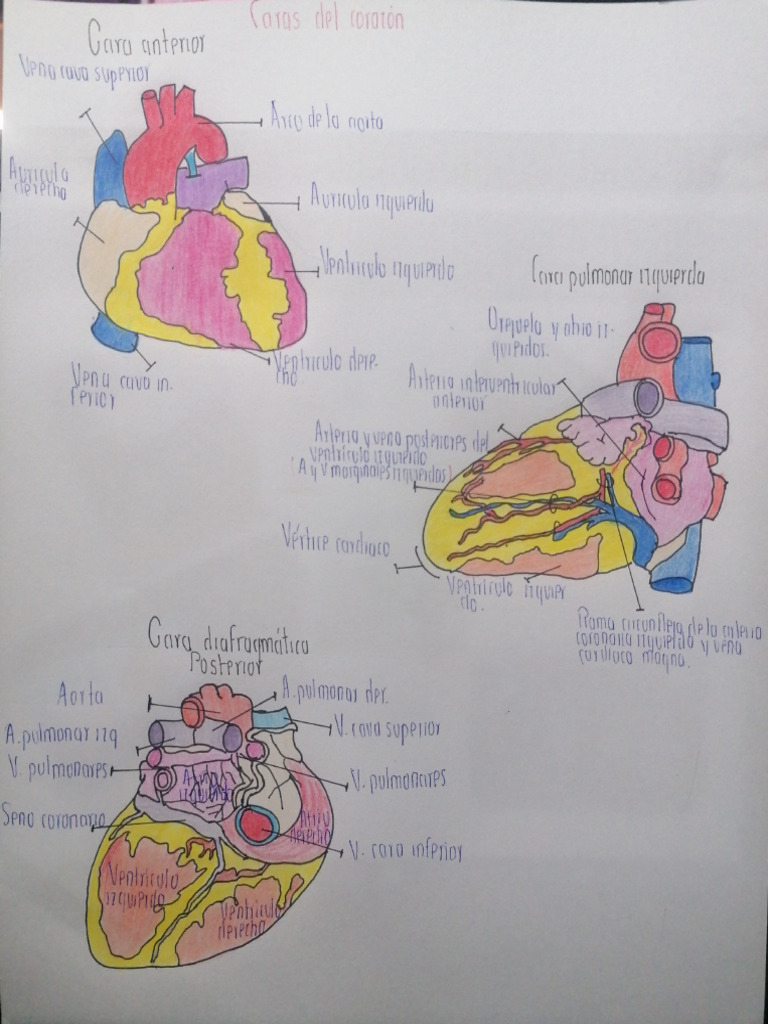 Caras del corazón
Cara anterior
Vena cava superior
Arco de la aorta
Aurícula
derecha
Aurícula izquierda
Ventrículo izquierdo
Ventrículo dere-
cho
Vena cava in-
ferior
Cara pulmonar izquierda
Orejuela y atrio iz-
quierdos.
Arteria interventricular
anterior
Arteria y vena posteriores del
ventrículo izquierdo
(A y V marginales izquierdas)
Vértice cardiaco
Ventrículo izquier
do.
Rama circunfleja de la arteria
coronaria izquierda y vena
cardiaca magna.
Cara diafragmática
Posterior
Aorta
A. pulmonar der.
A. pulmonar izq
V. cava superior
V. pulmonares
V. pulmonares
Atrio
izquierdo
Seno coronario
Atrio
derecho
V. cava inferior
Ventrículo
izquierdo
Ventrículo
derecho